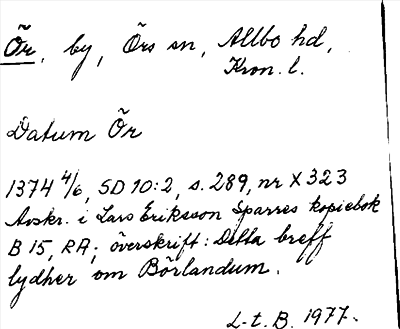 Ör, by, Örs sn, Allbo hd,
Kron. l.
Datum Ör
1374 4/6, SD 10:2, s. 289, nr X 323
Avskr. i Lars Eriksson Sparres kopiebok
B 15, RA; överskrift: Detta breff
lydher om Börlandum.
L-t. B. 1977.